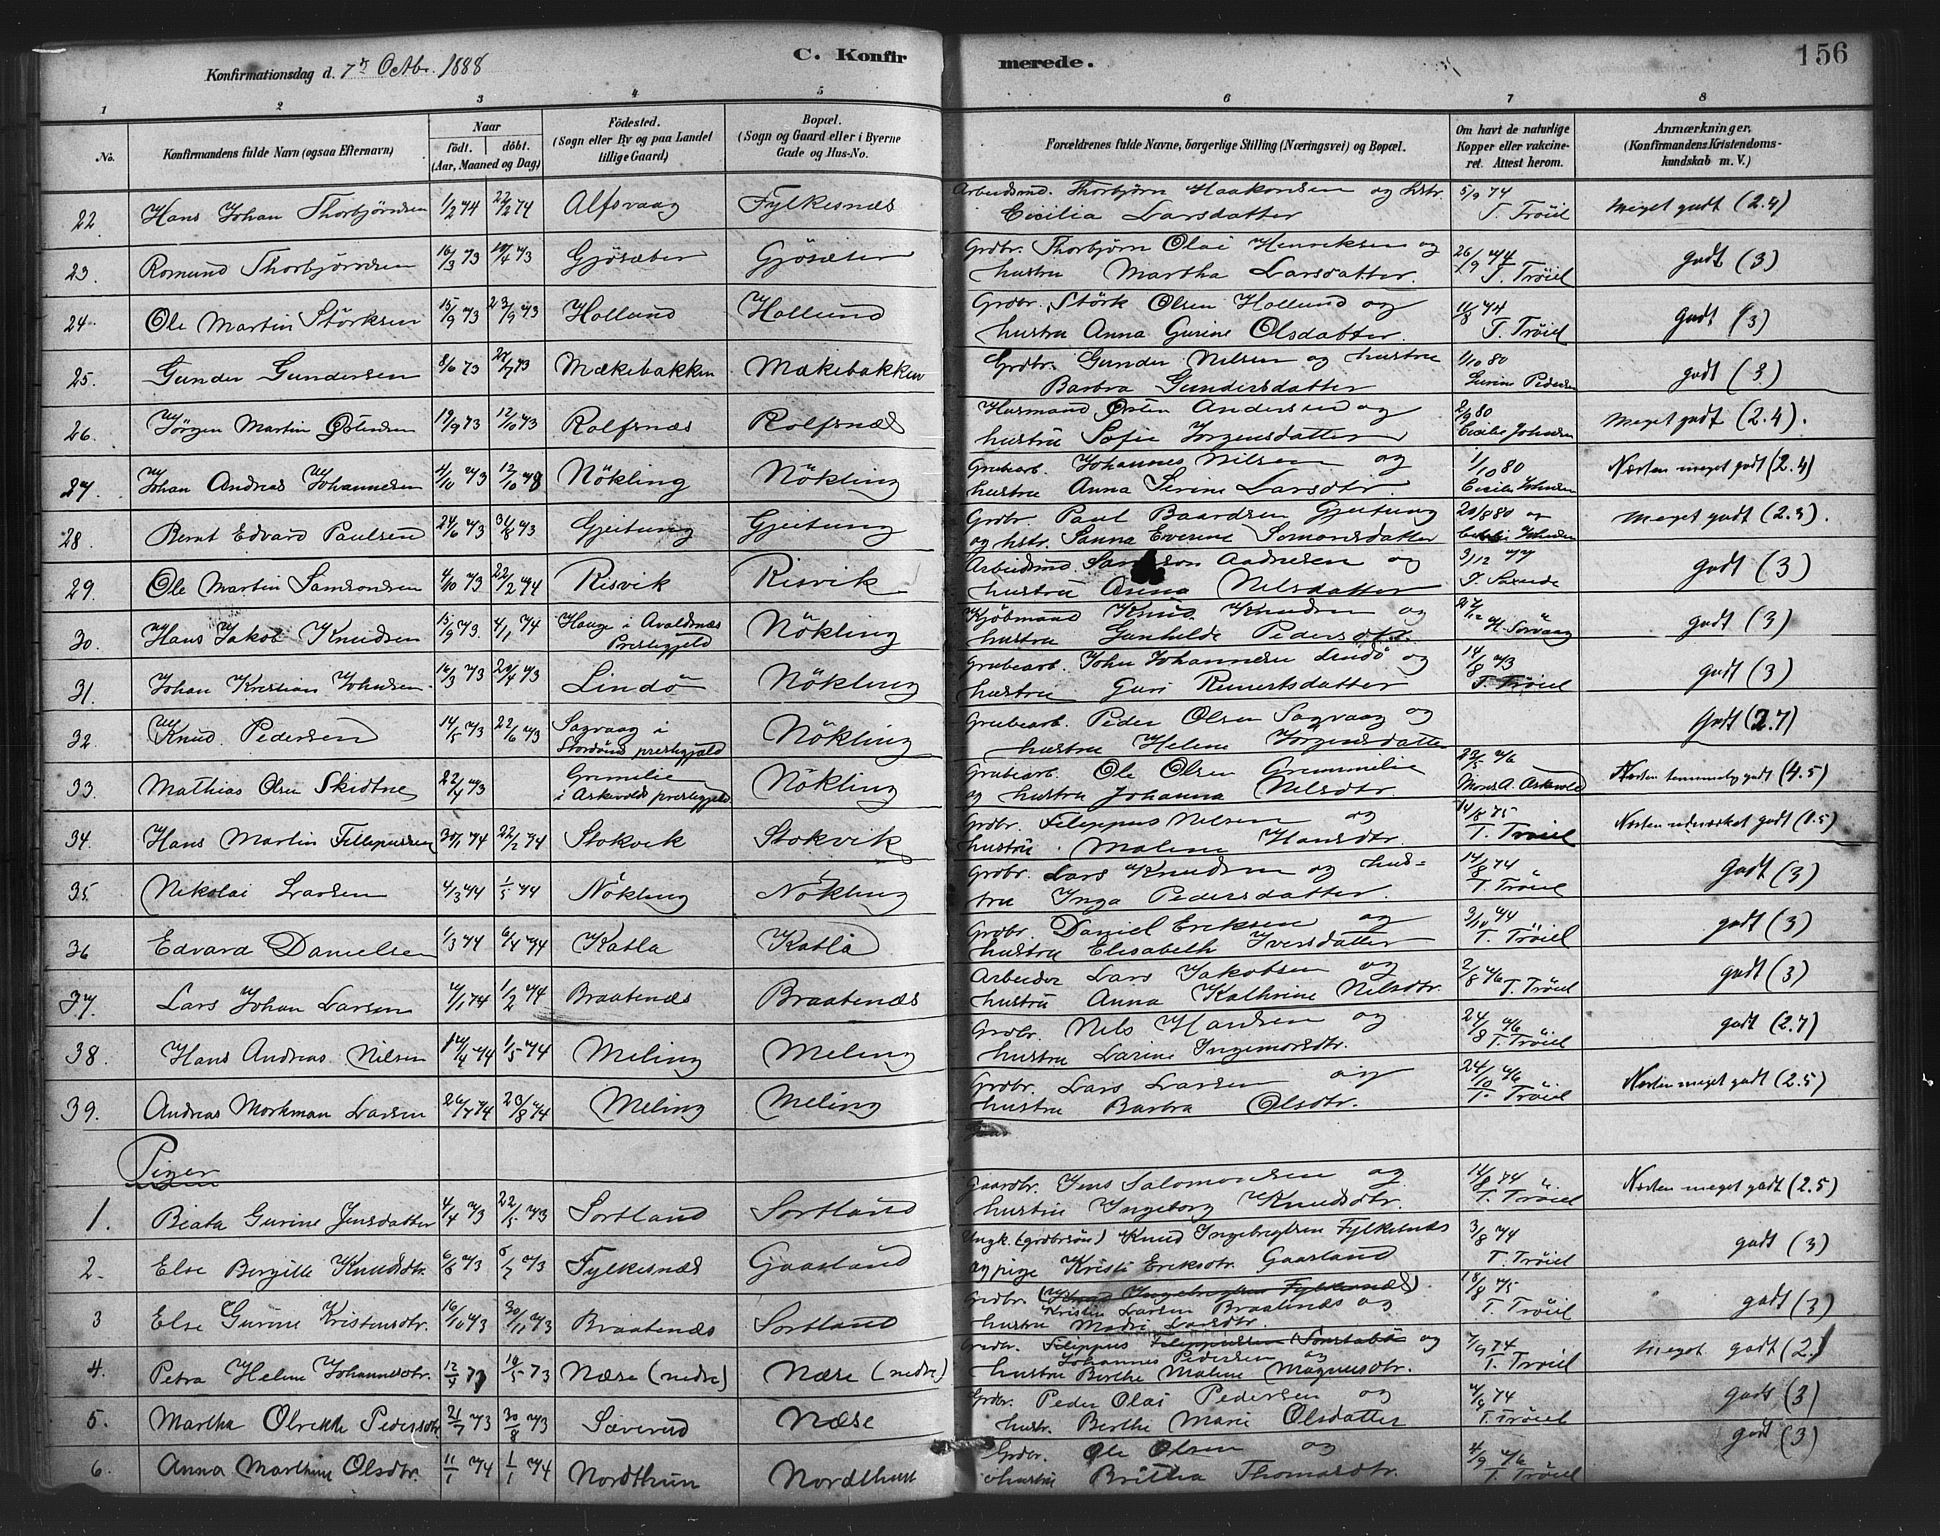 156
C. Konfirmerede.
Konfirmationsdag d. 7de Octbr. 1888
1 2 3 4 5 6 7 8
No. Konfirmandens fulde Navn (ogsaa Efternavn) Naar födt. döbt. (Aar, Maaned og Dag) Födested. (Sogn eller By og paa Landet tillige Gaard) Bopæl. (Sogn og Gaard eller i Byerne Gade og Hus-No. Forældrenes fulde Navne, borgerlige Stilling (Næringsvei) og Bopæl. Om havt de naturlige Kopper eller vakcineret. Attest herom. Anmærkninger, (Konfirmandens Kristendomskundskab m. V.)
22. Hans Johan Thorbjørnsen 1/2 74 22/2 74 Alfsvaag Fylkesnæs Arbeidsmd. Thorbjörn Haakonsen og hstr. Cecilia Larsdatter 5/9 74 T. Tröiel Meget godt (2.4)
23. Romund Thorbjörnsen 16/3 73 14/4 73 Gjösæter Gjösæter Grdbr. Thorbjörn Olai Henriksen og hustru Martha Larsdatter 26/9 74 T. Tröiel godt (3)
24. Ole Martin Störksen 15/9 73 23/9 73 Hollund Hollund Grdbr. Störk Olsen Hollund og hustru Anna Gurine Olsdatter 11/8 74 T. Tröiel godt (3)
25. Gunder Gundersen 8/6 73 27/7 73 Mækebakken Mækebakken Grdbr. Gunder Nilsen og hustru Barbra Gundersdatter 1/10 80 Gurine Pedersen godt (3)
26. Jörgen Martin Östensen 19/9 73 12/10 73 Rolfsnæs Rolfsnæs Husmand Östen Andersen og hustru Sofie Jörgensdatter 2/9 80 Cecilie Johnsen Meget godt (2.4).
27. Johan Andreas Johannesen 4/10 73 12/10 78 Nökling Nökling Grubearb. Johannes Nilsen og hustru Anna Serine Larsdtr. 1/10 80 Cecilie Johnsen Næsten meget godt (2.4)
28. Bernt Edvard Paulsen 24/6 73 31/8 73 Gjeitung Gjeitung Grdbr. Paul Baardsen Gjeitung og hstr. Sanna Everine Somonsdatter 20/8 80 Cecilie Johnsen Meget godt (2.3).
29. Ole Martin Samsonsen 4/10 73 22/2 74 Risvik Risvik Arbeidsmd. Samson Aadnesen og hustru Anna Nilsdatter 3/12 77 godt (3)
30. Hans Jakob Knudsen 15/9 73. 4/1 74 Hauge i Avaldsnæs Prestegjeld Nökling Kjöbmand Knud Knudsen og hustru Gunhilde Pedersdtr. 27/12 H. Sörvaag godt (3)
31. Johan Kristian Johnsen 16/3 73 20/4 73 Lindö Nökling Grubearb. John Johannesen Lindö og hustru Guri Reinertsdatter 14/8 73 T. Tröiel godt (3)
32. Knud Pedersen 14/5 73 22/6 73 Sagvaag i Stordöens prestegjeld Nökling Grubearb. Peder Olsen Sagvaag og hustru Helene Jörgensdatter godt (2.7)
33. Mathias Olsen Skidtne 22/4 73 Gremelie i Askvolds prestegjeld Nökling Grubearb. Ole Olsen Gremmelie og hustru Johanna Nilsdtr 22/5 76 Mons A. Askvold Næsten temmelig godt (4.5)
34. Hans Martin Fillipussen 30/1 74 22/2 74 Stokvik Stokvik Grdbr. Filippus Nilsen og hustru Malene Hansdtr. 14/8 75 T. Tröiel Næsten udmærket godt (1.5)
35. Nikolai Larsen 4/3 74 1/5 74 Nökling Nökling Grdbr. Lars Knudsen og hustru Inga Pedersdatter 14/8 74 T. Tröiel Godt (3)
36 Edvard Danielsen 1/3 74 6/4 74 Katla Katla Grdbr. Daniel Eriksen og hustru Elisabeth Iversdatter 3/10 74 T. Tröiel godt (3)
37. Lars Johan Larsen 4/1 74 1/2 74 Braatenæs Braatenæs Arbeider Lars Jakobsen og hustru Anna Kathrine Nilsdtr. 2/8 76 T. Tröiel godt (3)
38. Hans Andreas Nilsen 14/4 74 1/5 74 Meling Meling Grdbr. Nils Hansen og hustru Larine Ingemorsdtr. 24/8 76 T. Tröiel godt (2.7)
39. Andreas Morkman Larsen 26/7 74 23/8 74 Meling Meling Grdbr. Lars Larsen og hustru Barbra Olsdtr. 24/10 76 T. Tröiel Næsten meget godt (2.5)
Piger
1. Beata Gurine Jensdatter 4/4 73 22/5 73 Sortland Sortland Gaardbr. Jens Salomonsen og hustru Ingeborg Knudsdtr. 14/8 74 T. Tröiel Næsten meget godt (2.5)
2. Else Bergitte Knudsdtr. 6/6 73 5/7 73 Fylkesnæs Gaasland Ungk. (grdbrsön) Knud Ingebregtsen Fylkesnæs og pige Kristi Eriksdtr. Gaasland 3/8 74 T. Tröiel godt (3)
3 Else Gurine Kristensdtr. 16/10 73 30/11 73 Braatenæs Sortland Grdbr. (Knud Ingebregtsen Fylkesnæs) Kristen Larsen Braatenæs og hustru Madri Larsdtr. 18/8 75 T. Tröiel godt (3)
4. Petra Helene Johannesdtr. 12/4 73 18/5 73 Næse (nedre) Næse (nedre) Grdbr. Filippus Filippussen og Johannes Pedersen og hustru Berthe Malene Magnusdtr. 7/9 74 T. Tröiel Meget godt (2.)
5. Martha Olrikke Pedersdtr 21/7 73 30/8 73 Sæverud Næse Grdbr. Peder Olai Pedersen og hustr. Berthe Marie Olsdatter 4/9 74 T. Tröiel godt (3)
6. Anna Marthine Olsdtr. 11/1 74 1/1 74 Nordthun Nordthun Grdbr. Ole Olsen og hustru Britha Thomasdtr. 4/9 76 T. Tröiel godt (3)